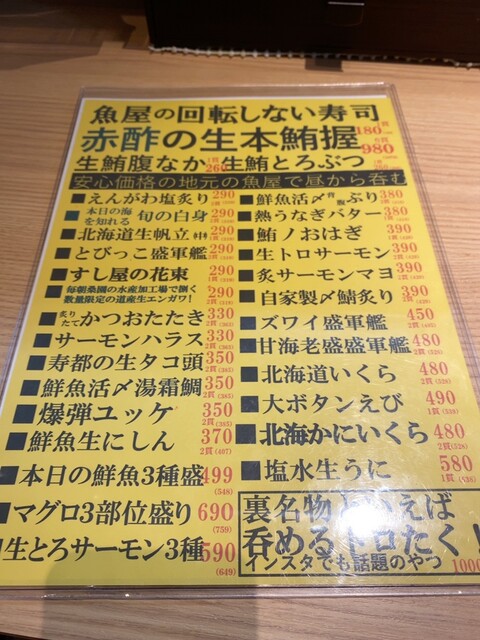 魚屋の回転しない寿司
赤酢の生本鮪握 180 980
生鮪腹なか 260 生鮪とろぶつ
安心価格の地元の魚屋で昼から呑む
■えんがわ塩炙り 290
■本日の海を知れる 旬の白身 290
■北海道生帆立 290
■とびっこ盛軍艦 290
■すし屋の花束 290
■毎朝桑園の水産加工場で捌く
数量限定の道産生エンガワ! 290
■炙りたて かつおたたき 330
■サーモンハラス 330
■寿都の生タコ頭 350
■鮮魚活〆湯霜鯛 350
■爆弾ユッケ 350
■鮮魚生にしん 370
2貫(407)
■本日の鮮魚3種盛 499
(548)
■マグロ3部位盛り 690
(759)
生とろサーモン3種 590
(649)
■鮮魚活〆 ぶり 380
■熱うなぎバター 380
■鮪ノおはぎ 390
■生トロサーモン 390
■炙サーモンマヨ 390
■自家製〆鯖炙り 390
■ズワイ盛軍艦 450
■甘海老盛盛軍艦 480
■北海道いくら 480
■大ボタンえび 490
■北海かにいくら 480
■塩水生うに 580
裏名物といえば
呑めるトロたく!
インスタでも話題のやつ 1000